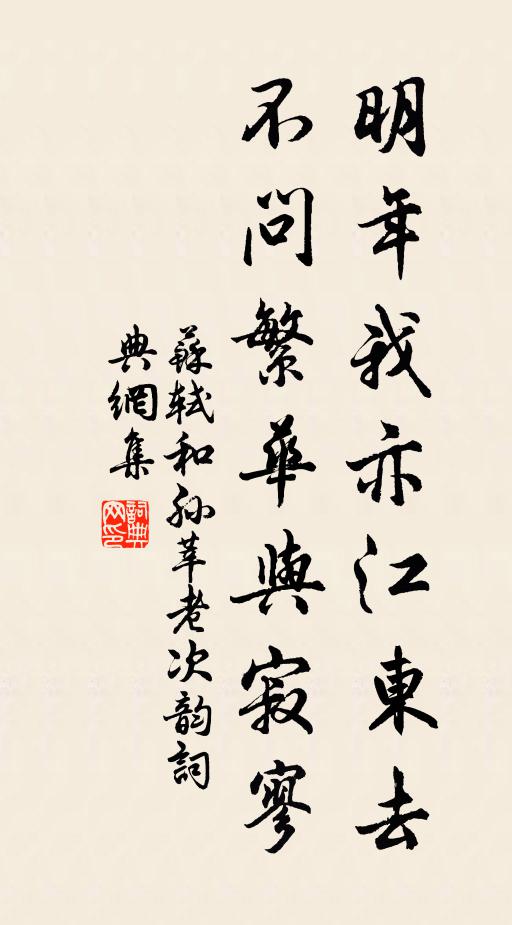 明年我亦江東去
不問繁華與寂寥
蘇軾和孫莘老次韵詞
典網集
詞典网印